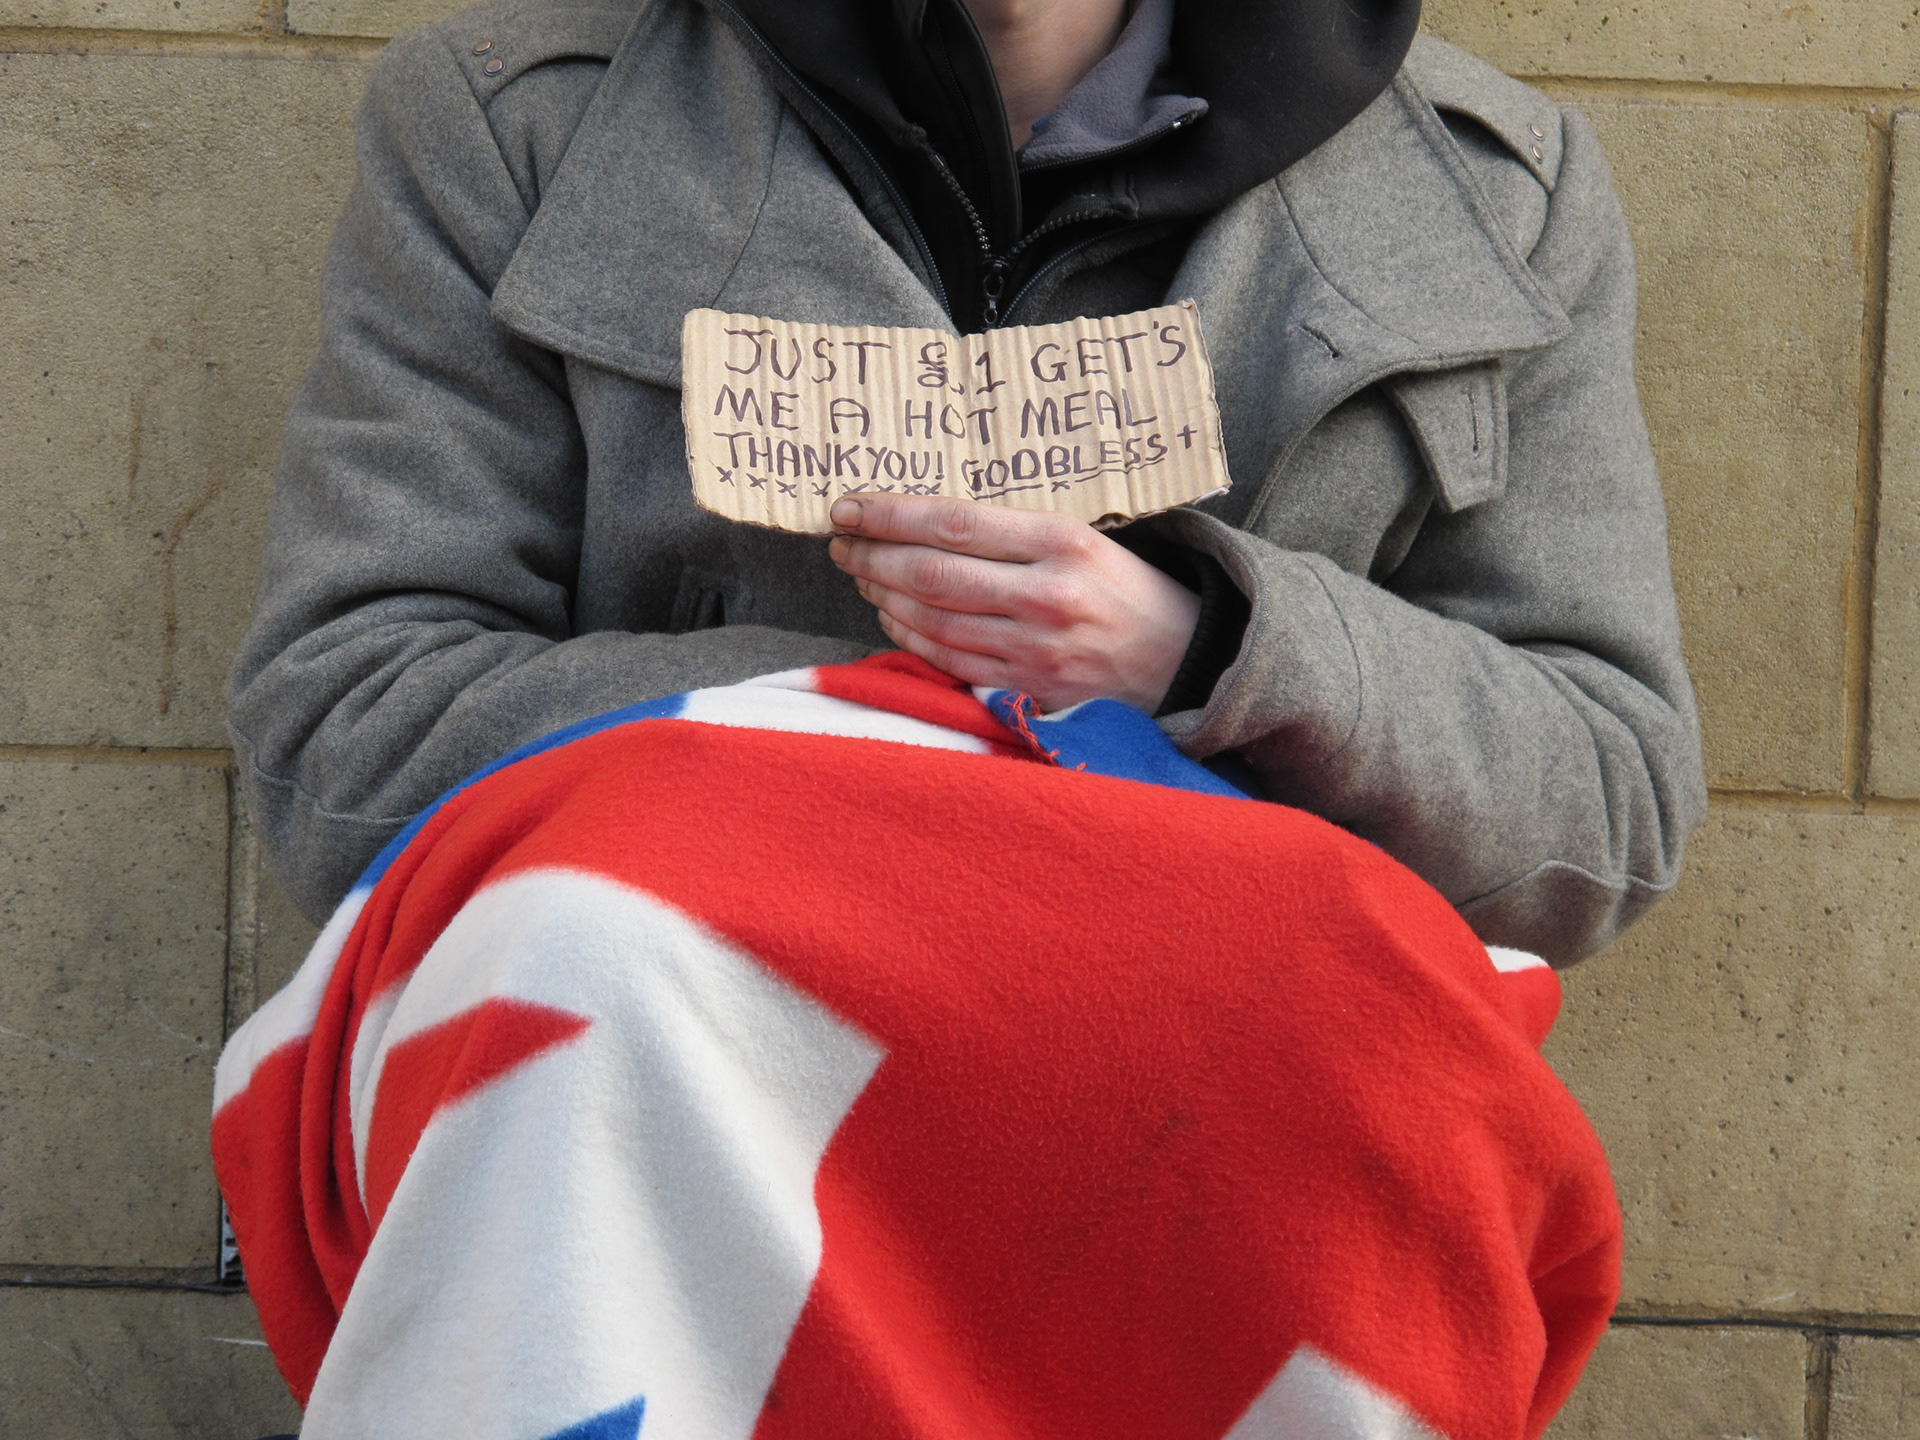 JUST £1 GET'S
ME A HOT MEAL
THANKYOU! GODBLESS +
x x x x x x x x x